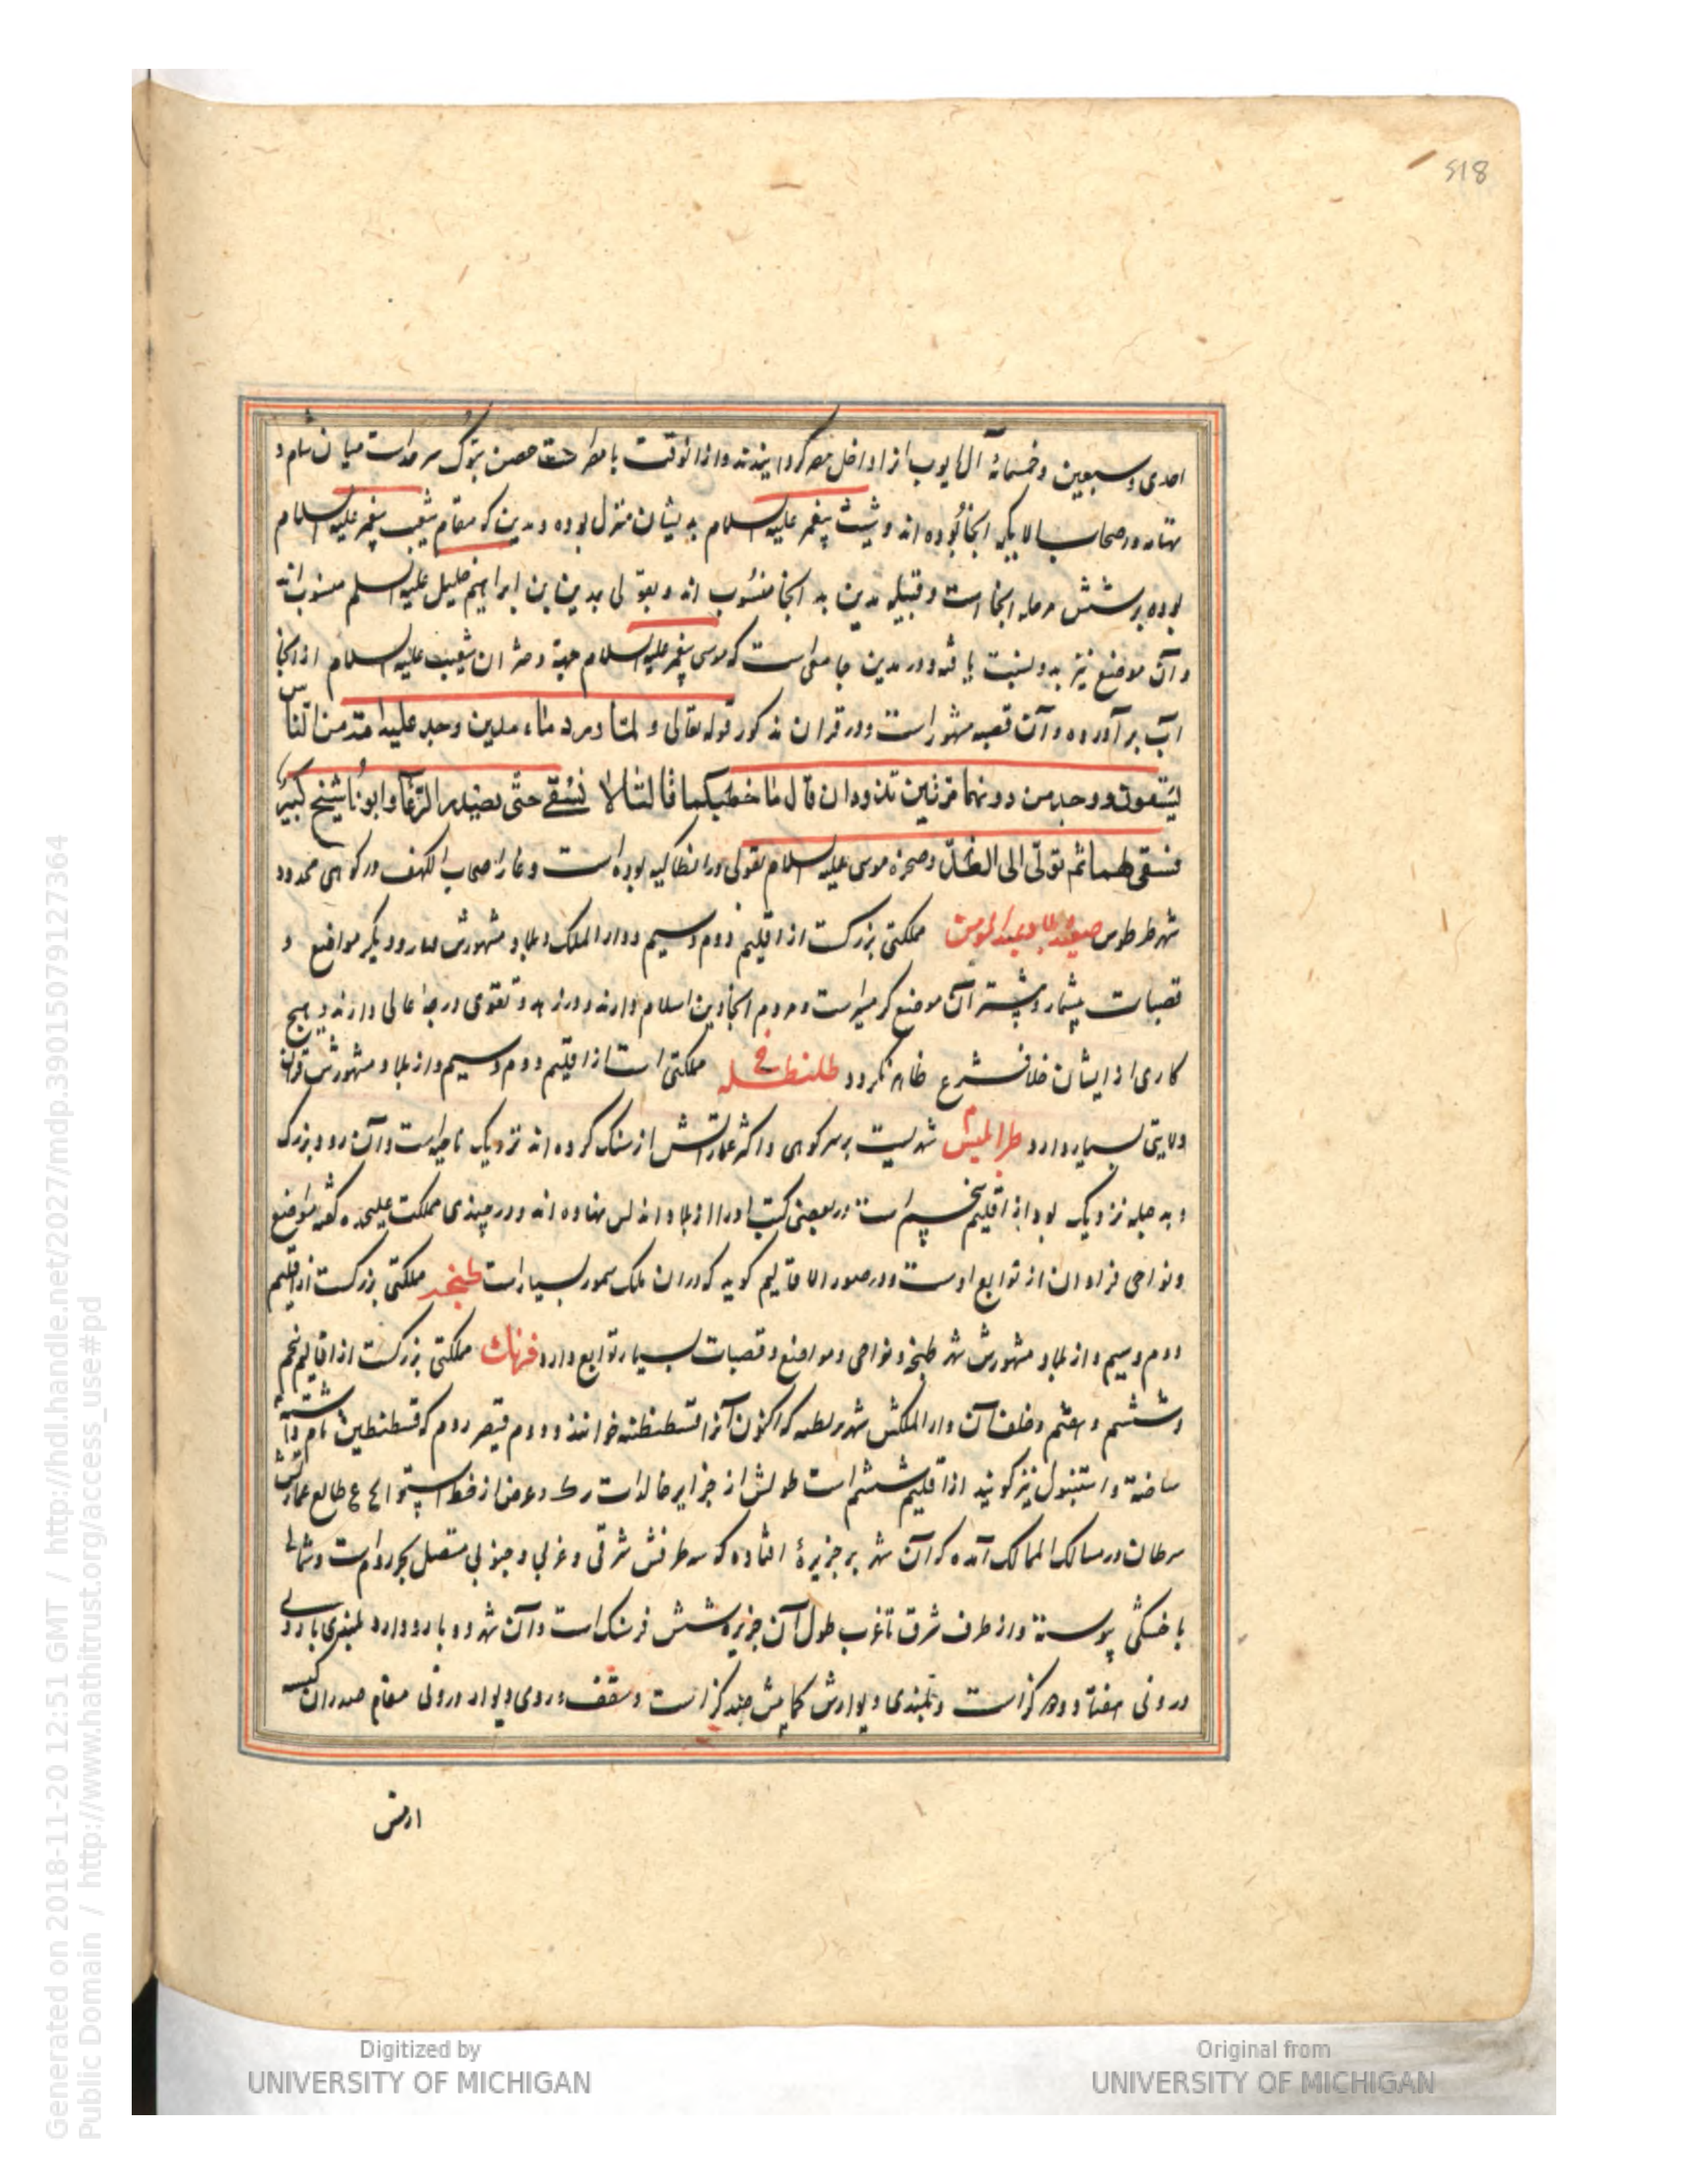 518
احدی و سبعین و خمسمائه آل ایوب از اداخل مصر گردانیدند و از آنوقت باطراحت حصن تبوک سرحداست میان شام و
تهامه و اصحاب الایکه آنجا بوده اند و شیث پیغمبر علیه السلام بدیشان منزل بوده و مدین که مقام شعیب پیغمبر علیه السلام
بوده بر شش مرحله آنجا است و قبیله مدین به آنجا منسوب اند و بقولی بمدین بن ابراهیم خلیل علیه السلم منسوب اند
و آن موضع نیز بدو نسبت یافته و در مدین چاهی است که موسی پیغمبر علیه السلام جهة دختران شعیب علیه السلام از آنجا
آب بر آورده و آن قصه مشهور است و در قران مذکور قوله تعالی و لمّا ورد ماء مدین وجد علیه امّة من النّاس
یسقون و وجد من دونهما مرئتین تذودان قال ما خطبکما قالتا لا نسقی حتّی یصدر الرّعاء و ابونا شیخ کبیر
فسقی لهما ثم تولّی الی الظلّ و صخره موسی علیه السلام بقولی در انطاکیه بوده است و غار اصحاب الکهف در کوهی حدود
شهر طرطوس مملکتی بزرگست از اقلیم دوم و سیم و دار الملک و بلاد مشهورش و دیگر مواضع و
قصبات بیشمار و بیشتر آن موضع گرمسیر است و مردم آنجا دین اسلام دارند و در زهد و تقوی درجهٔ عالی دارند و هیچ
کاری از ایشان خلاف شرع ظاهر نگردد مملکتی است از اقلیم دوم و سیم و از بلاد مشهورش
ولایتی بسیار دارد شهریست بر سر کوهی و اکثر عماراتش از سنگ کرده اند نزدیک ناحیه است و آن رود بزرگ
و به جبله نزدیک بود از اقلیم پنجم است در بعضی کتب او را از بلاد اندلس نهاده اند و در چندی مملکت علیحده گفته مواضع
و نواحی فراوان از توابع اوست و در صور الاقالیم گوید که در ان ملک سمور بسیار است طنجه مملکتی بزرگست از اقلیم
دوم و سیم و از بلاد مشهورش شهر طنجه و نواحی و مواضع و قصبات بسیار توابع دارد فرنک مملکتی بزرگست از اقالیم پنجم
و ششم و هفتم و خلف آن دار الملکش شهر که اکنون آنرا قسطنطنیه خوانند و دوم قیصر روم که قسطنطین نام داشته
ساخته و استنبول نیز گویند از اقلیم ششم است طولش از جزایر خالدات و عرض از خط استوا طالع عمارتش
سرطان در مسالک الممالک آمده که آن شهر بر جزیرهٔ افتاده که سه طرفش شرقی و غربی و جنوبی متصل بحر روم است و شمالی
با خشکی پیوسته و از طرف شرق تا غرب طول آن جزیره شش فرسنگ است و آن شهر دو بارو دارد بلندی باروی
درونی هفتاد و دو گز است و بلندی دیوارش کمابیش چند گز است و سقف و روی دیوار درونی مقام
Generated on 2018-11-20 12:51 GMT / http://hdl.handle.net/2027/mdp.39015079127364
Public Domain / http://www.hathitrust.org/access_use#pd
Digitized by
UNIVERSITY OF MICHIGAN
Original from
UNIVERSITY OF MICHIGAN